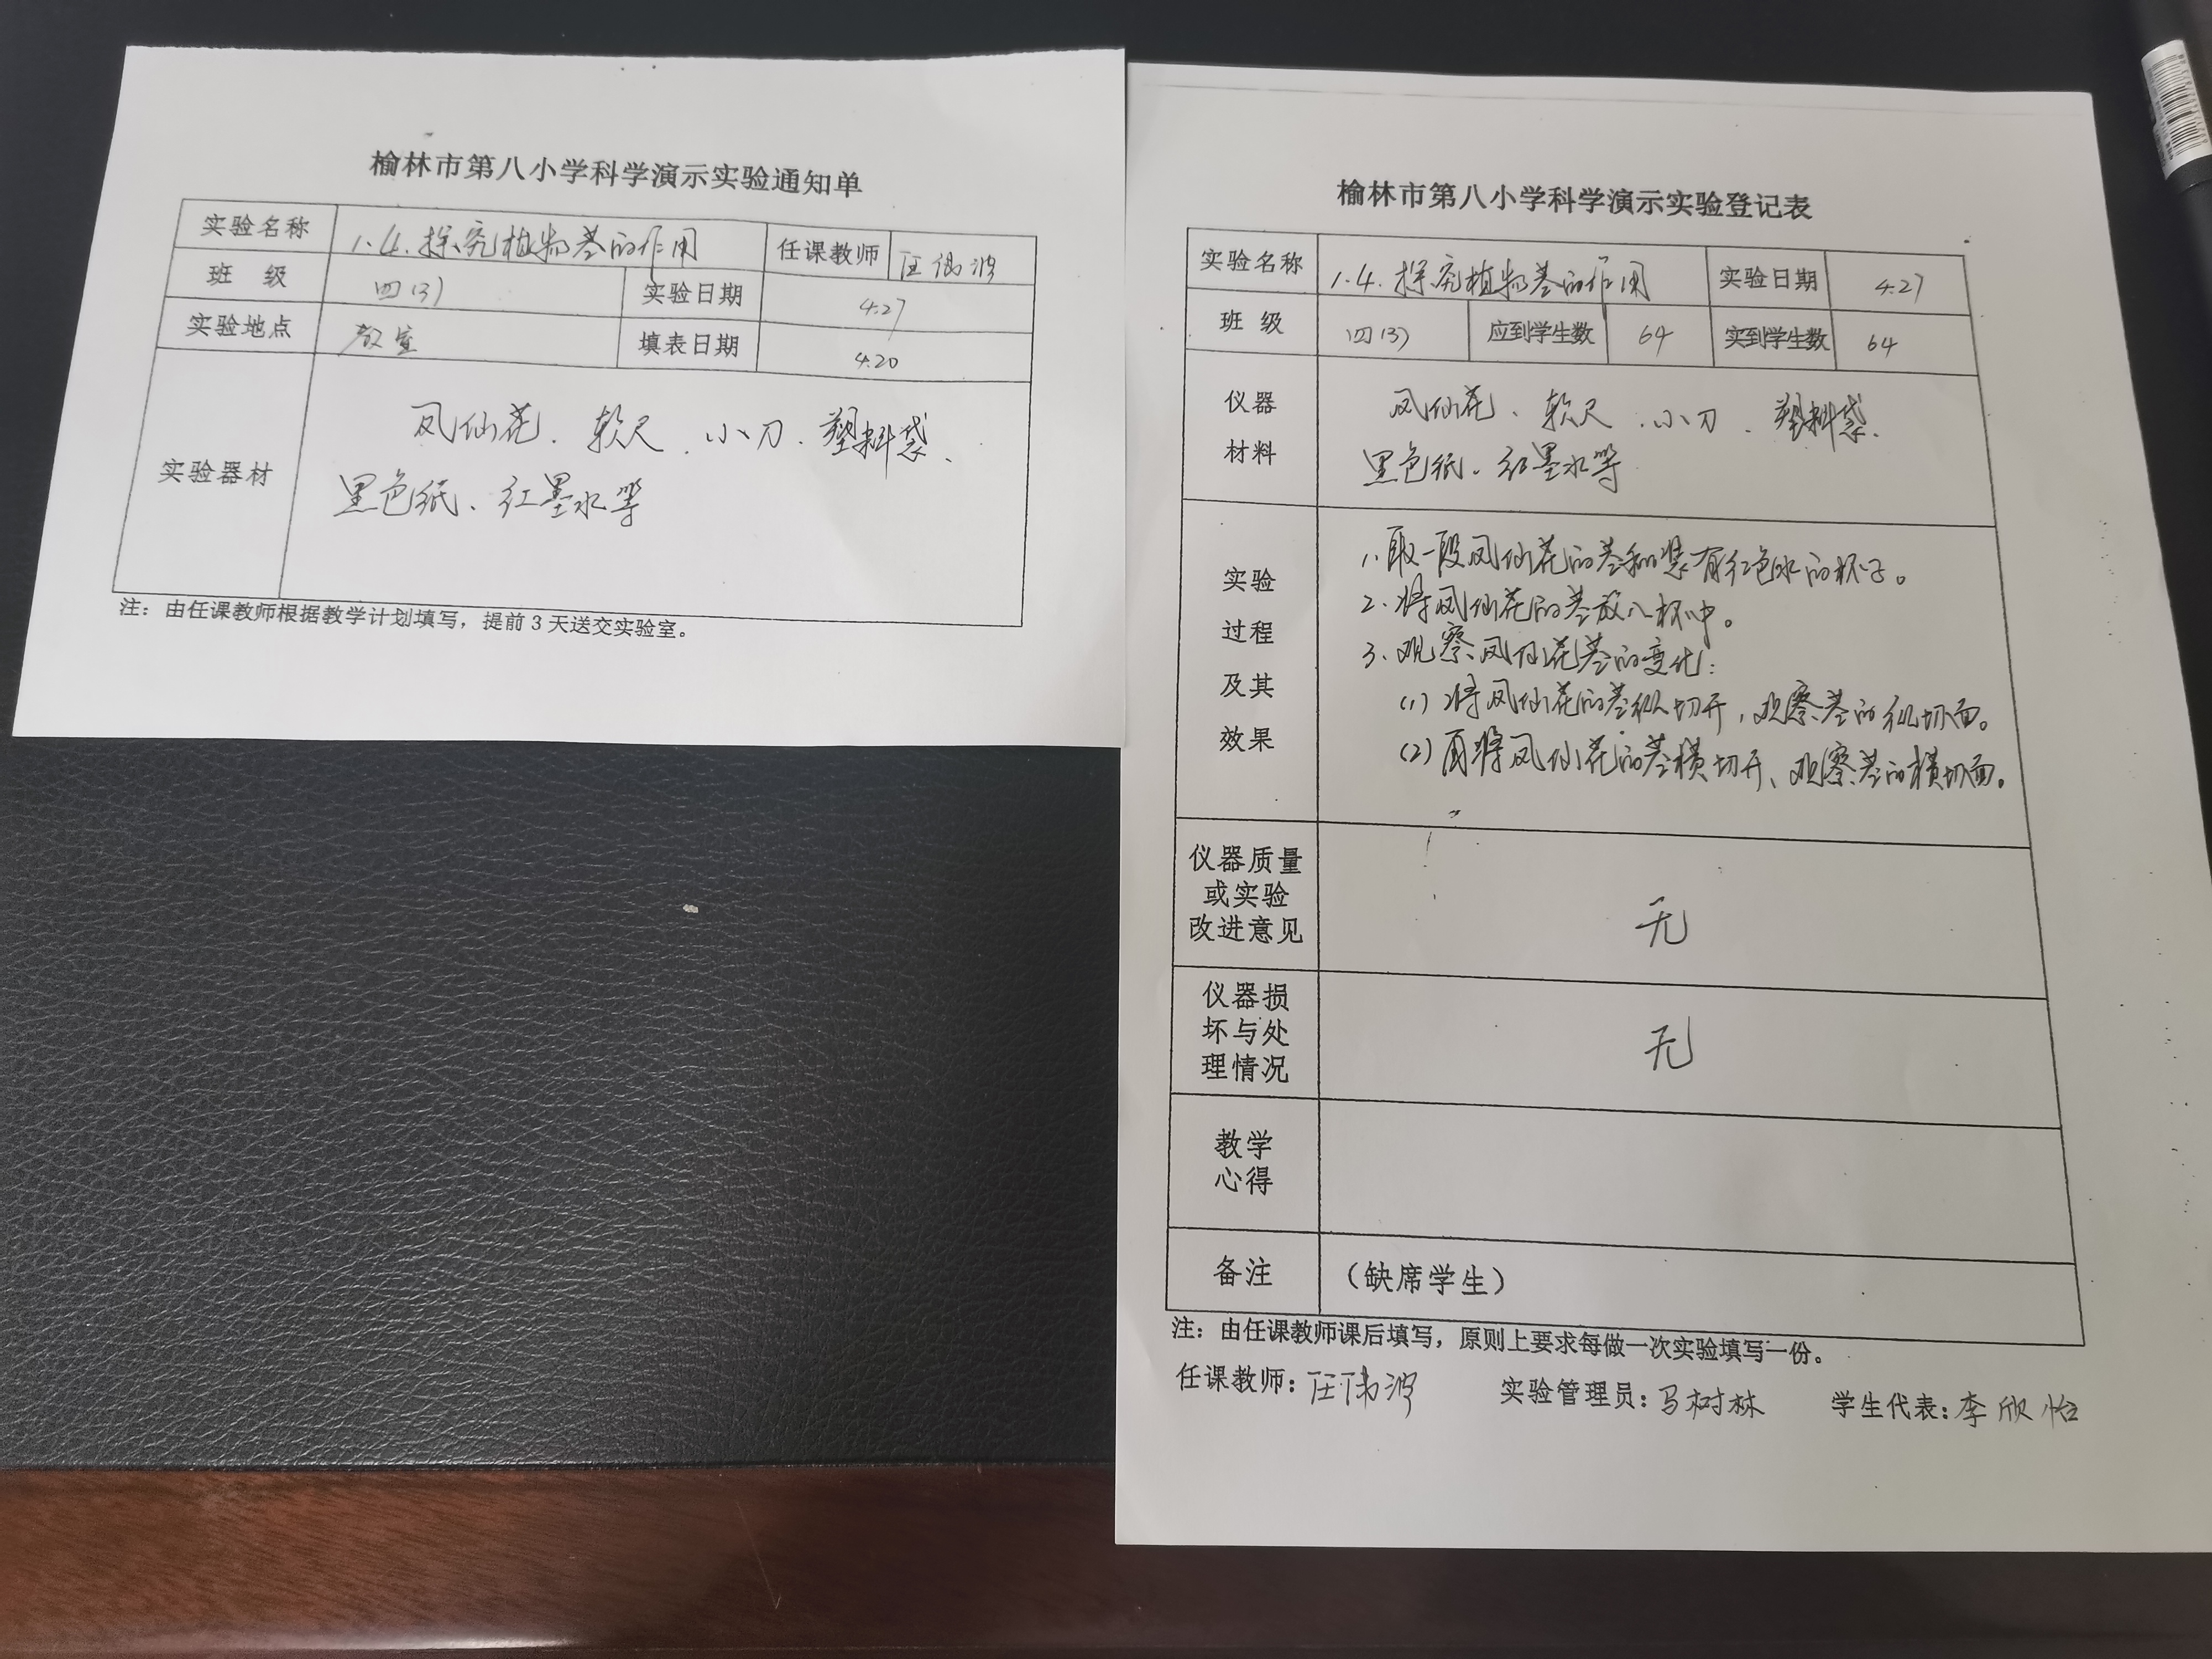 榆林市第八小学科学演示实验通知单
实验名称 1.4.探究植物茎的作用 任课教师 汪伟波
班 级 四(3) 实验日期 4.27
实验地点 教室 填表日期 4.20
实验器材 凤仙花、软尺、小刀、塑料袋、
黑色纸、红墨水等
注：由任课教师根据教学计划填写，提前3天送交实验室。
榆林市第八小学科学演示实验登记表
实验名称 1.4.探究植物茎的作用 实验日期 4.27
班 级 四(3) 应到学生数 64 实到学生数 64
仪器
材料
凤仙花、软尺、小刀、塑料袋、
黑色纸、红墨水等
实验
过程
及其
效果
1、取一段凤仙花的茎和装有红色水的杯子。
2、将凤仙花的茎放入杯中。
3、观察凤仙花茎的变化：
(1)将凤仙花的茎纵切开，观察茎的纵切面。
(2)再将凤仙花的茎横切开、观察茎的横切面。
仪器质量
或实验
改进意见
无
仪器损
坏与处
理情况
无
教学
心得
备注 （缺席学生）
注：由任课教师课后填写，原则上要求每做一次实验填写一份。
任课教师：汪伟波 实验管理员：马树林 学生代表：李欣怡